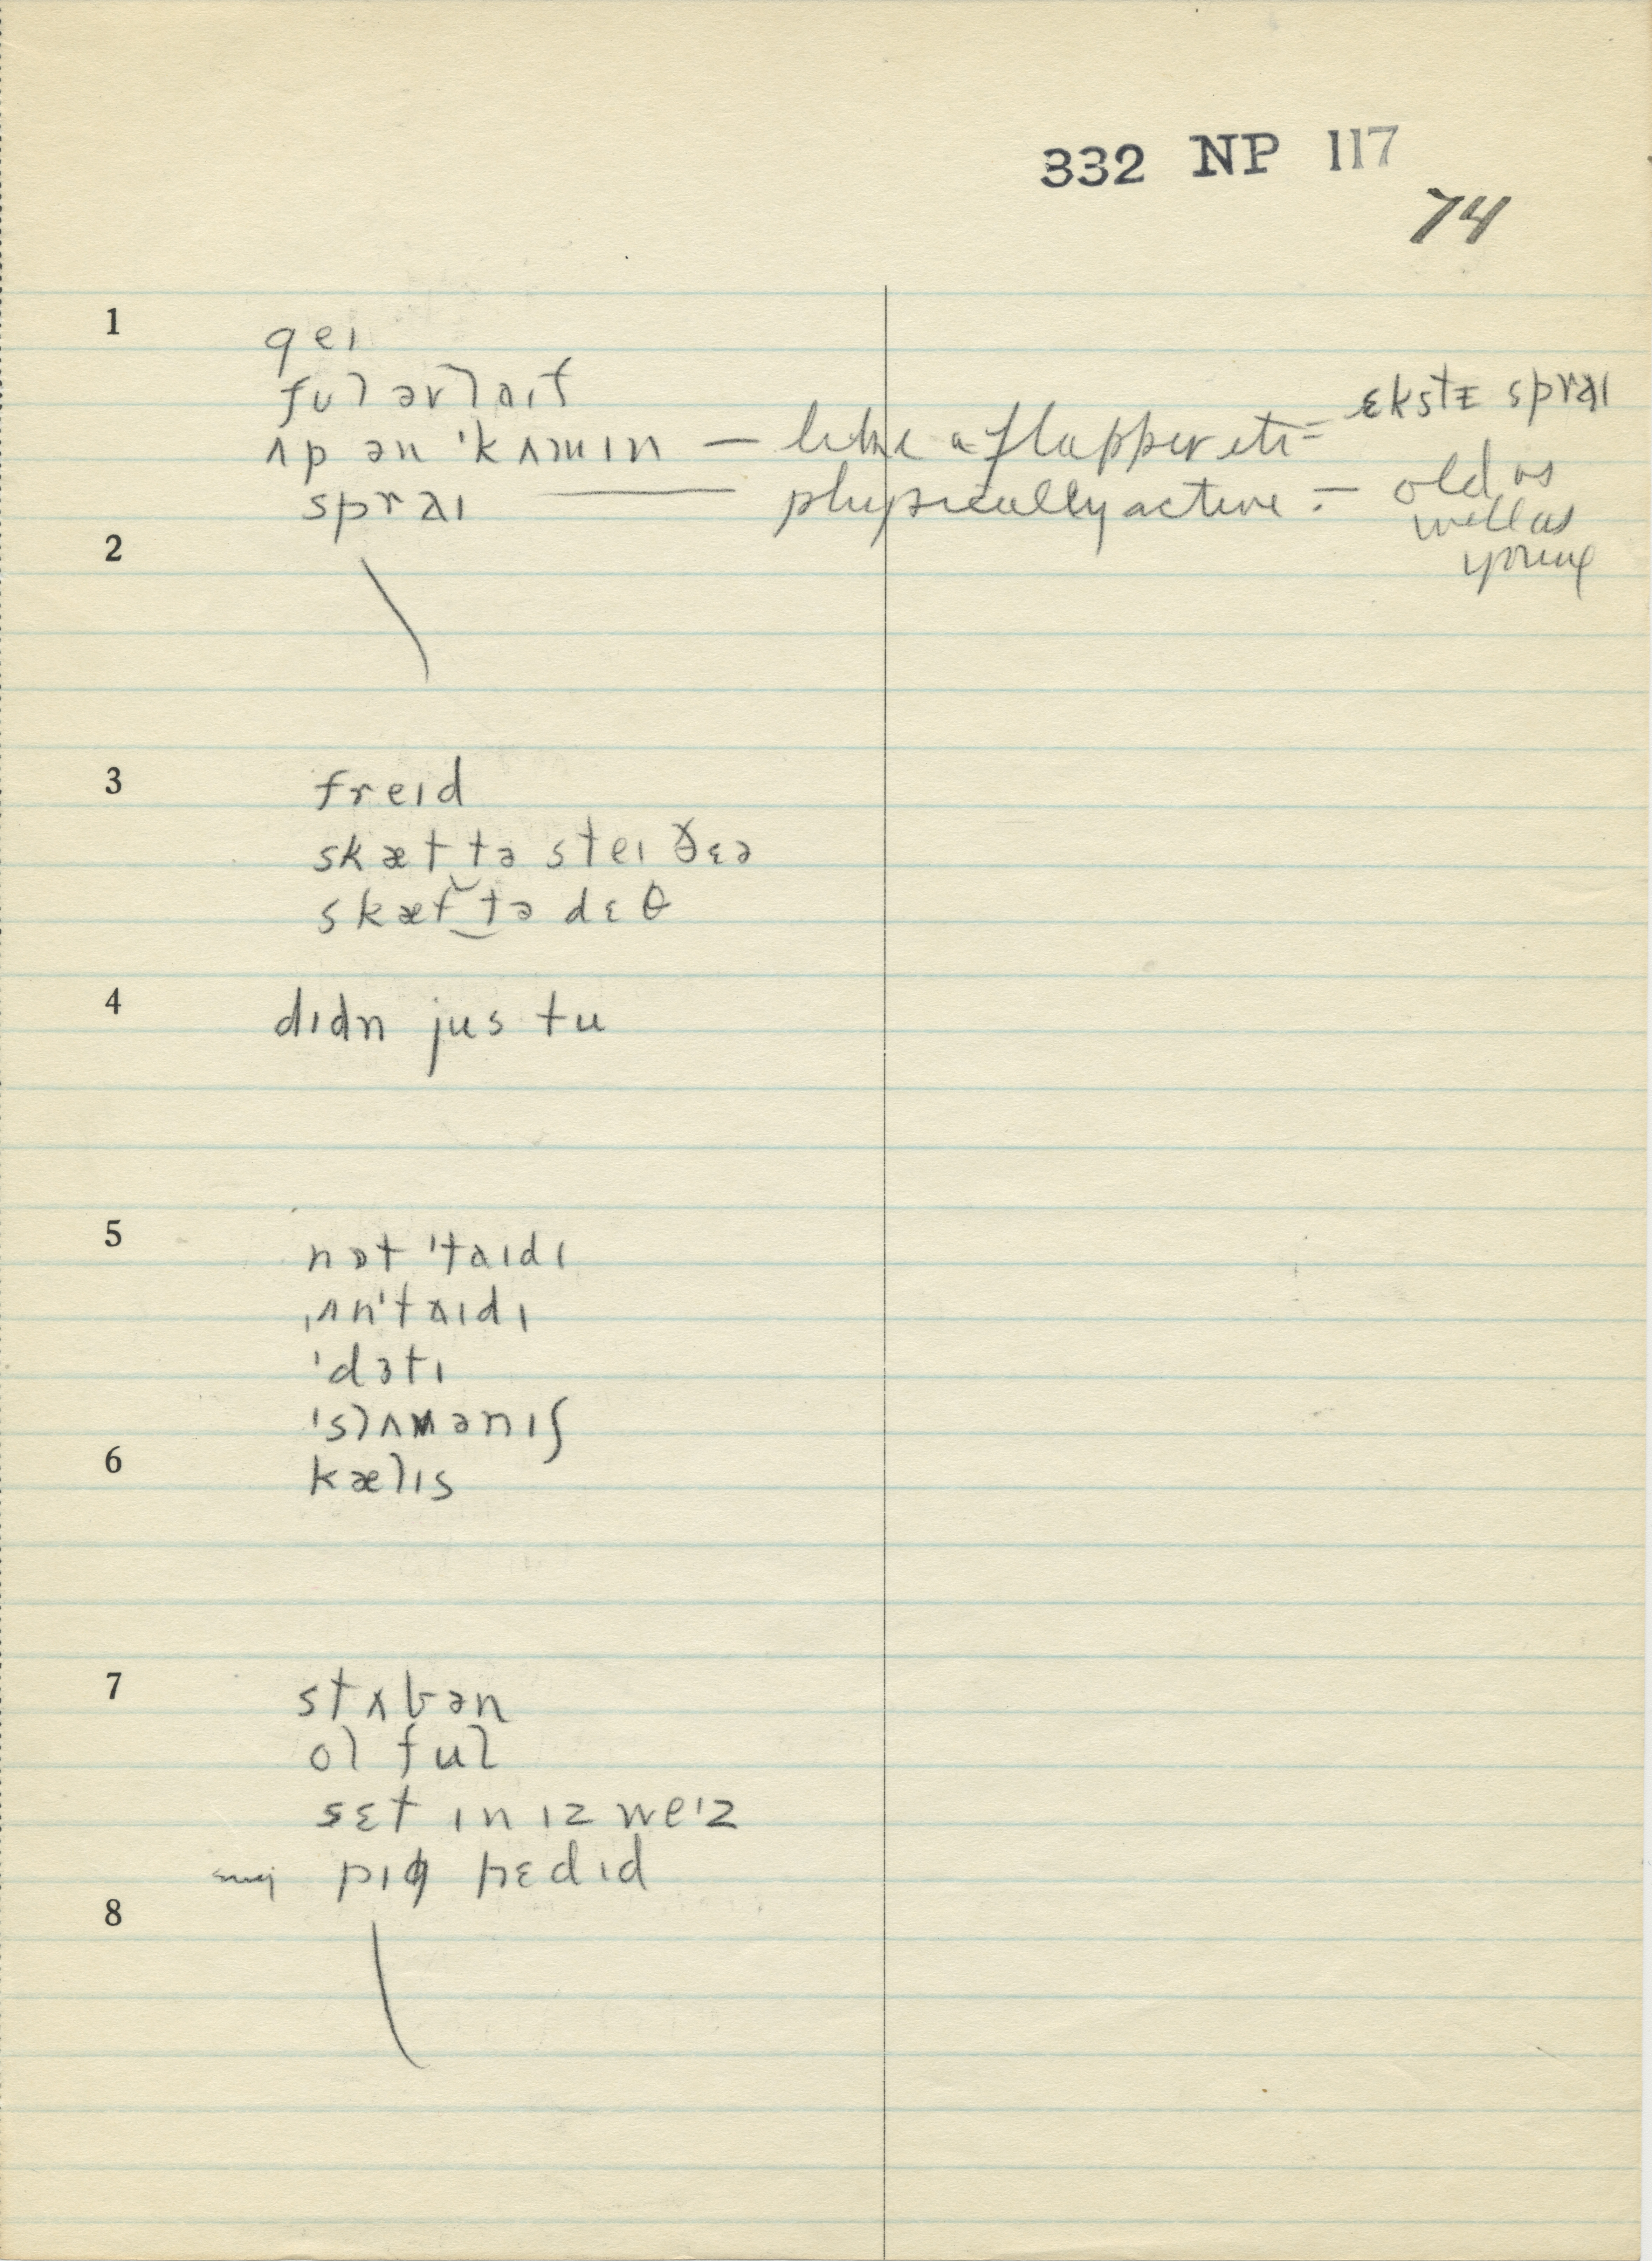 332 NP 117
74
1
geɪ
ful əv laɪf
ʌp ən 'kʌmɪn — like a flapper etc =
ɛkstɛ spraɪ
spraɪ — physically active :– old as
well as
young
2
3
freɪd
skæt tə steɪ ðɛə
skæt tə dɛθ
4
dɪdn jus tu
5
nɒt 'taɪdɪ
ˌʌn'taɪdɪ
'dɜtɪ
'slʌmənɪʃ
6
kælɪs
7
stʌbən
ol ful
sɛt ɪn ɪz weɪz
pɪg hɛdɪd
8